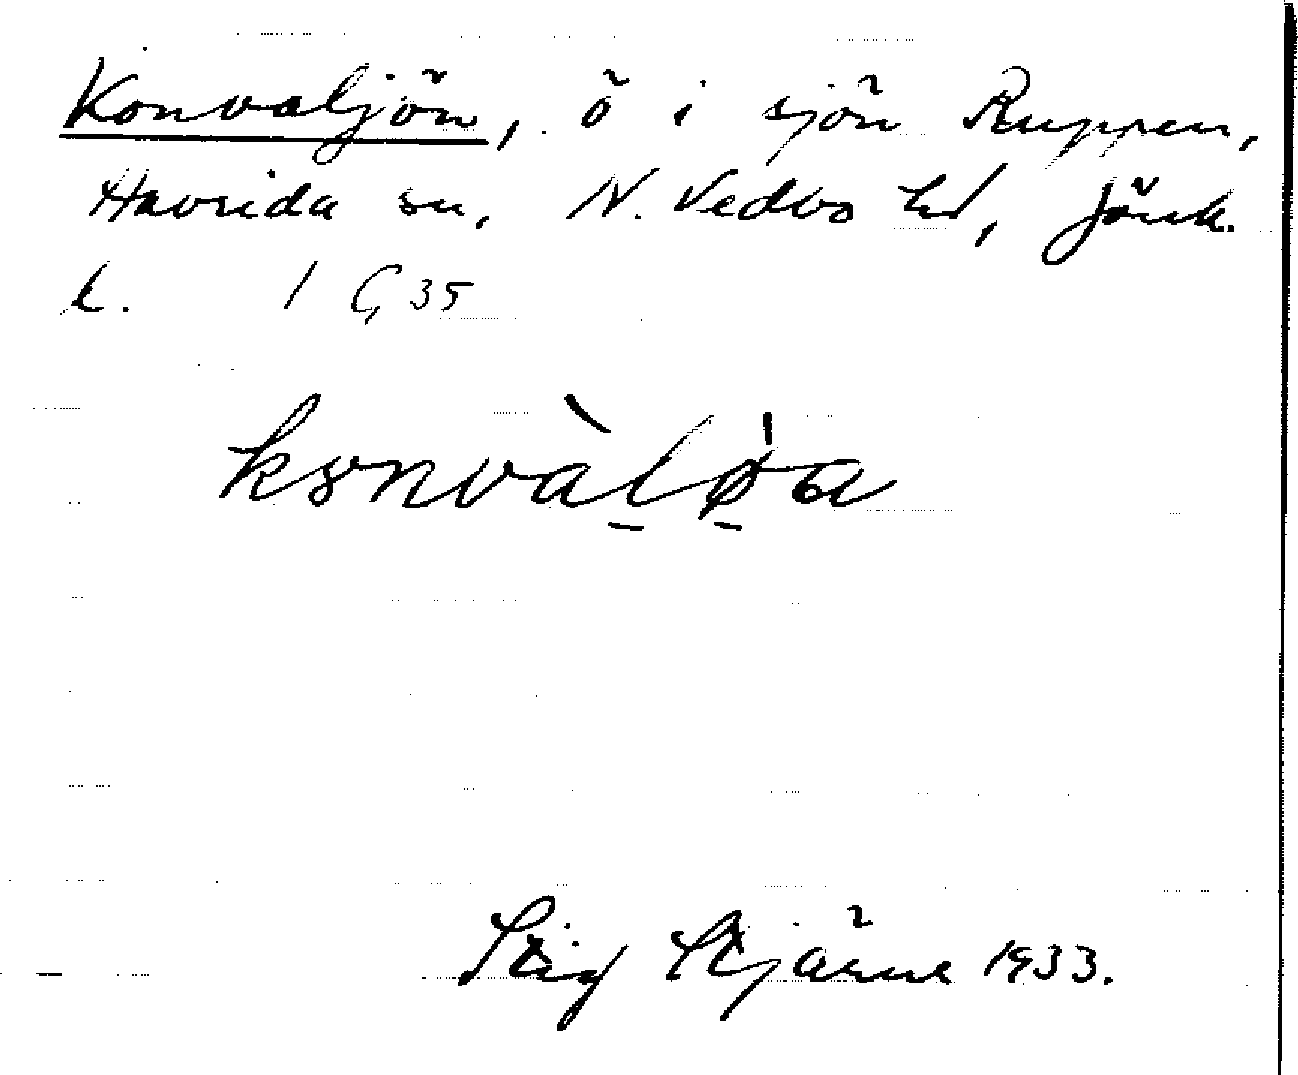 Konvaljön, ö i sjön Ruppen,
Haurida sn, N. Vedbo hd, Jönk.
l. 1 G 35
Stig Stjärne 1933.